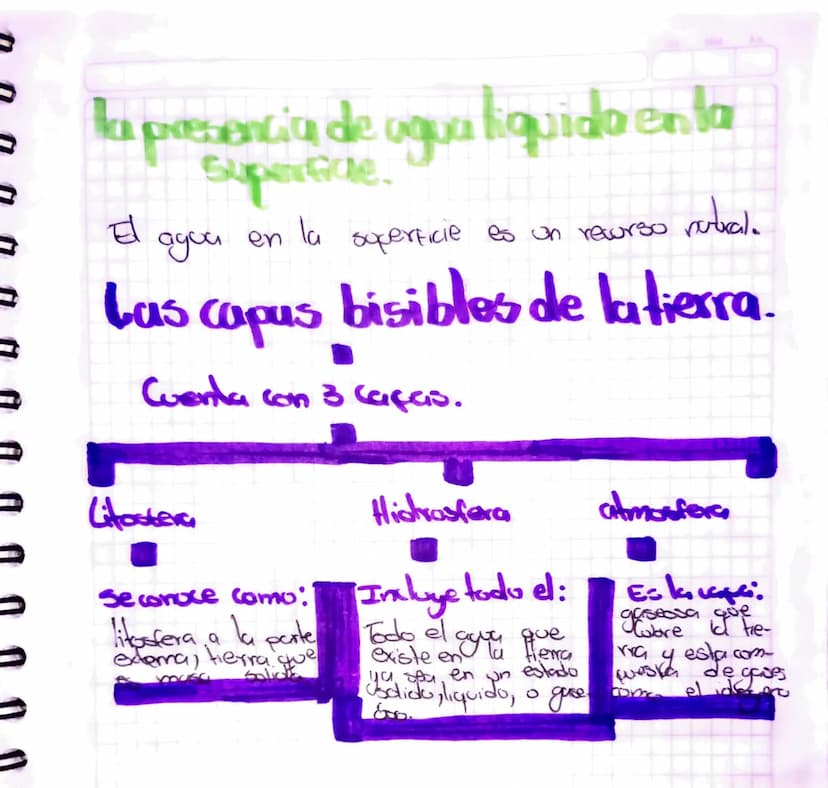 la presencia de agua liquida en la
superficie.
El agua en la superficie es un recurso natural.
Las capas bisibles de la tierra.
Cuenta con 3 capas.
Litosfera
Se conoce como:
litosfera a la parte
externa, tierra que
masa solida
Hidrosfera
Incluye todo el:
Todo el agua que
existe en la tierra
ya sea en un estado
solido, liquido, o gase
oso.
atmosfera
Es la capa:
gaseosa que
cubre la tie-
rra y esta com-
puesta de gases
como el